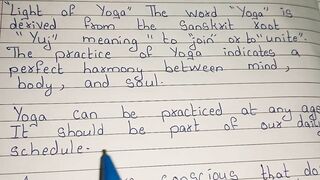 "Light of Yoga" The word "Yoga" is
derived from the Sanskrit root
"Yuj" meaning "to "join" or to "unite".
The practice of Yoga indicates a
perfect harmony between mind,
body, and soul.
Yoga can be practiced at any age
It should be part of our daily
schedule.
conscious that